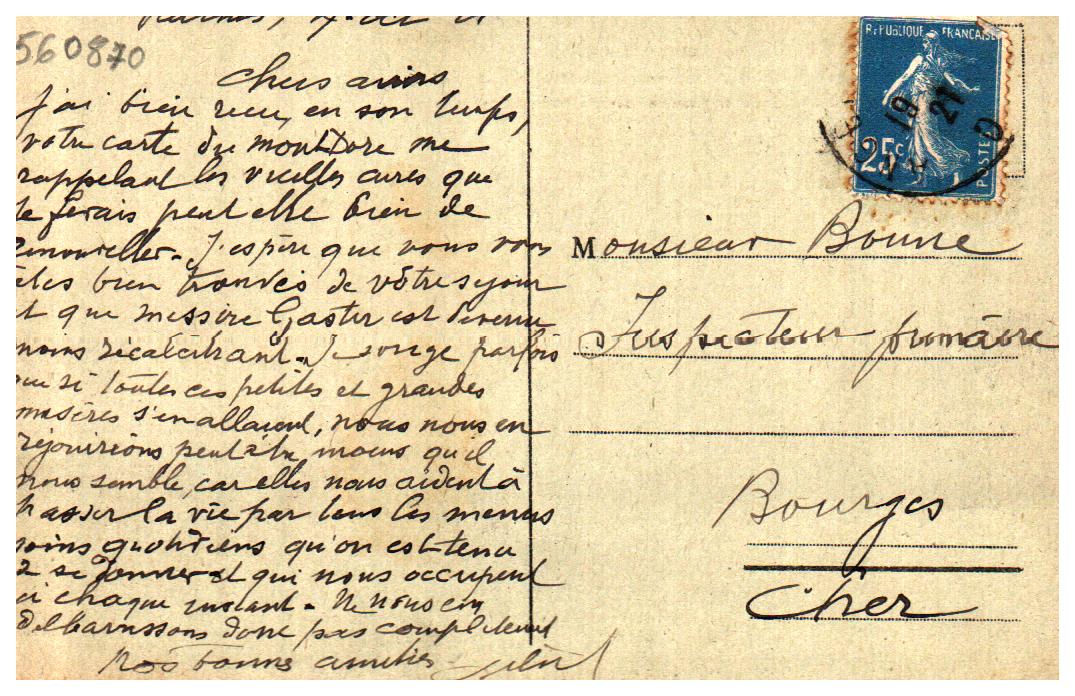 560870
Chers amis
J'ai bien reçu, en son temps,
votre carte du mont Dore me
rappelant les vieilles cures que
je ferais peut être bien de
renouveler. J'espère que vous vous
êtes bien trouvés de vôtre séjour
et que messire Gaster est devenu
moins récalcitrant. Je songe parfois
que si toutes ces petites et grandes
misères s'en allaient, nous nous en
réjouirions peut être moins qu'il
nous semble, car elles nous aident à
passer la vie par tous les menus
soins quotidiens qu'on est tenu
à se donner et qui nous occupent
à chaque instant. Ne nous en
débarrassons donc pas complètement
Nos bonnes amitiés
REPUBLIQUE FRANÇAISE
25c
POSTES
19
21
Monsieur Bonne
Inspecteur primaire
Bourges
Cher